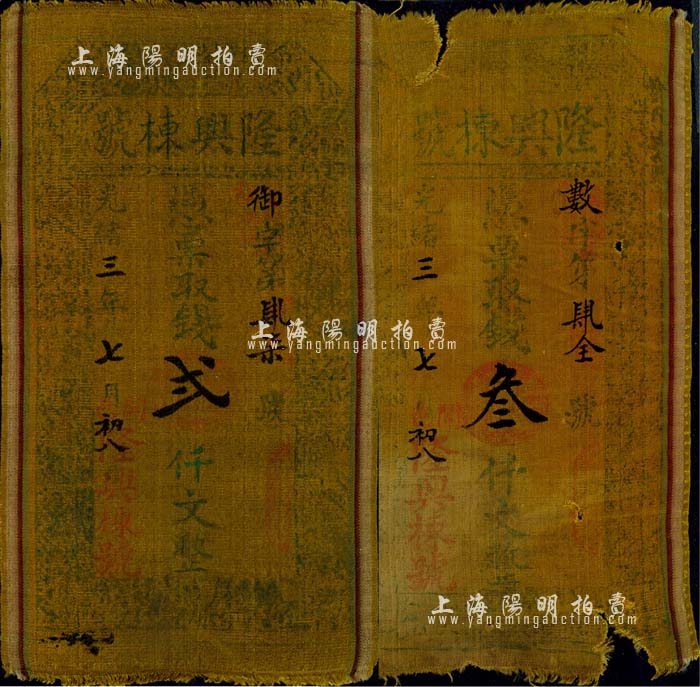 上海陽明拍賣
www.yangmingauction.com
隆興棟號
御字第肆柒號
憑票取錢弍仟文整
光緒三年七月初八
隆興棟號
隆興棟號
數字第肆全號
憑票取錢叁仟文整
光緒三七初八
隆興棟號
上海陽明拍賣
www.yangmingauction.com
上海陽明拍賣
www.yangmingauction.com